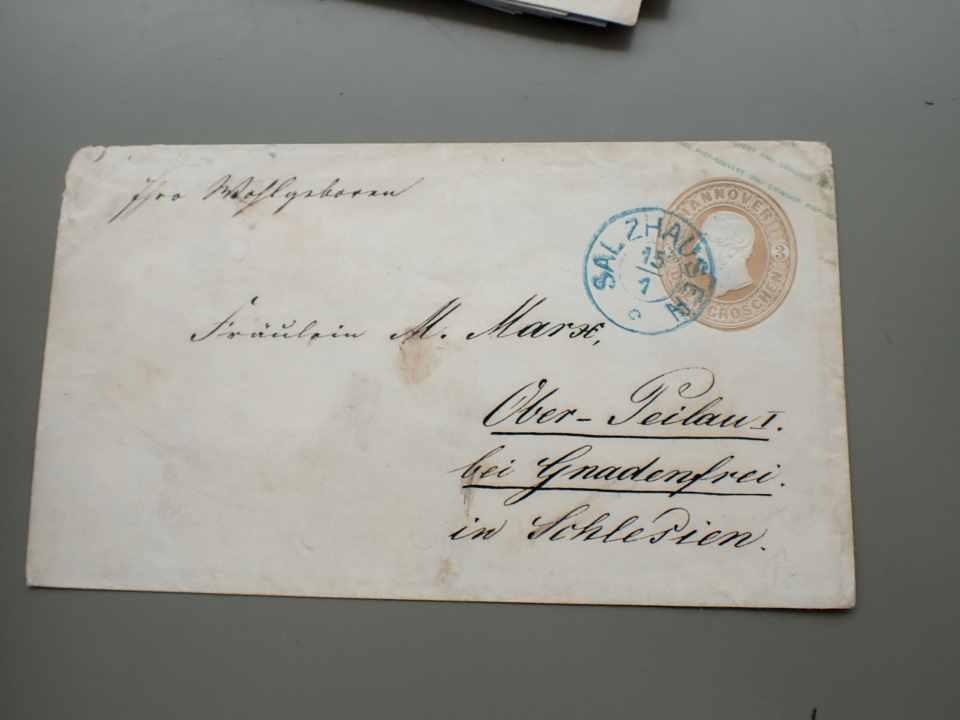 Ihro Wohlgeboren
HANNOVER
3
GROSCHEN
SALZHAUSEN
15
/
7
Fräulein M. Marx,
Ober-Peilau I.
bei Gnadenfrei.
in Schlesien.